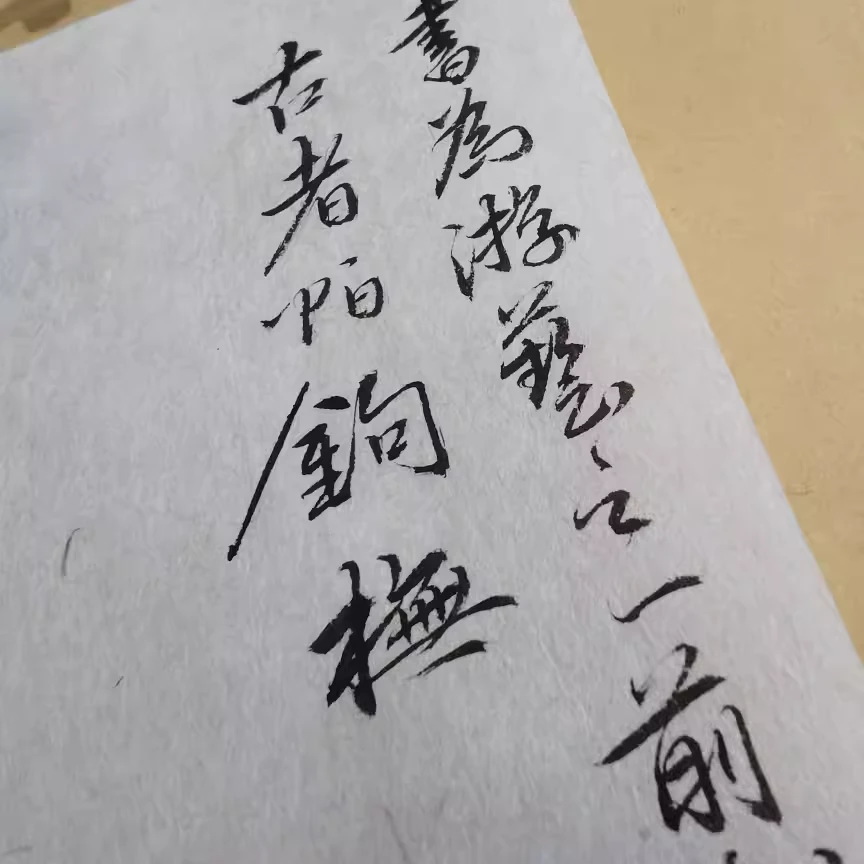 書為游藝之一前
古者帕鉤橅